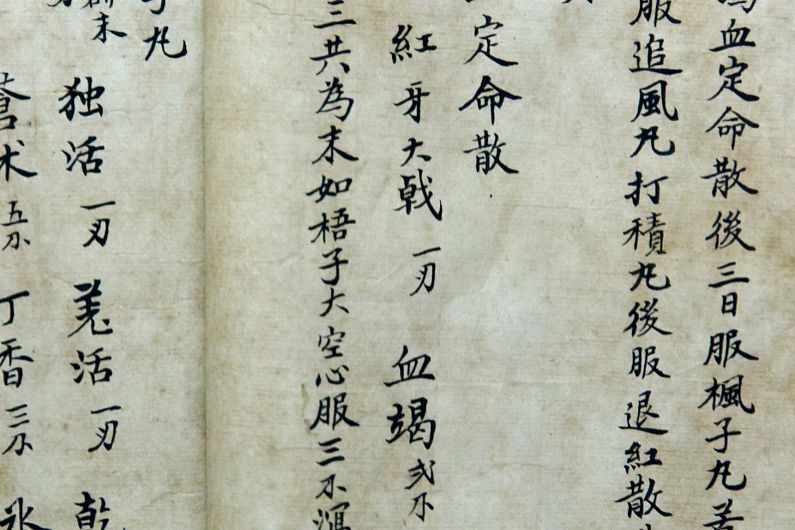 血定命散後三日服楓子丸
服追風丸打積丸後服退紅散
定命散
紅牙大戟 一刃 血竭 弍不
三共為末如梧子大空心服三不
子丸
末 独活 一刃 羗活 一刃 乾
蒼术 五不 丁香 三不